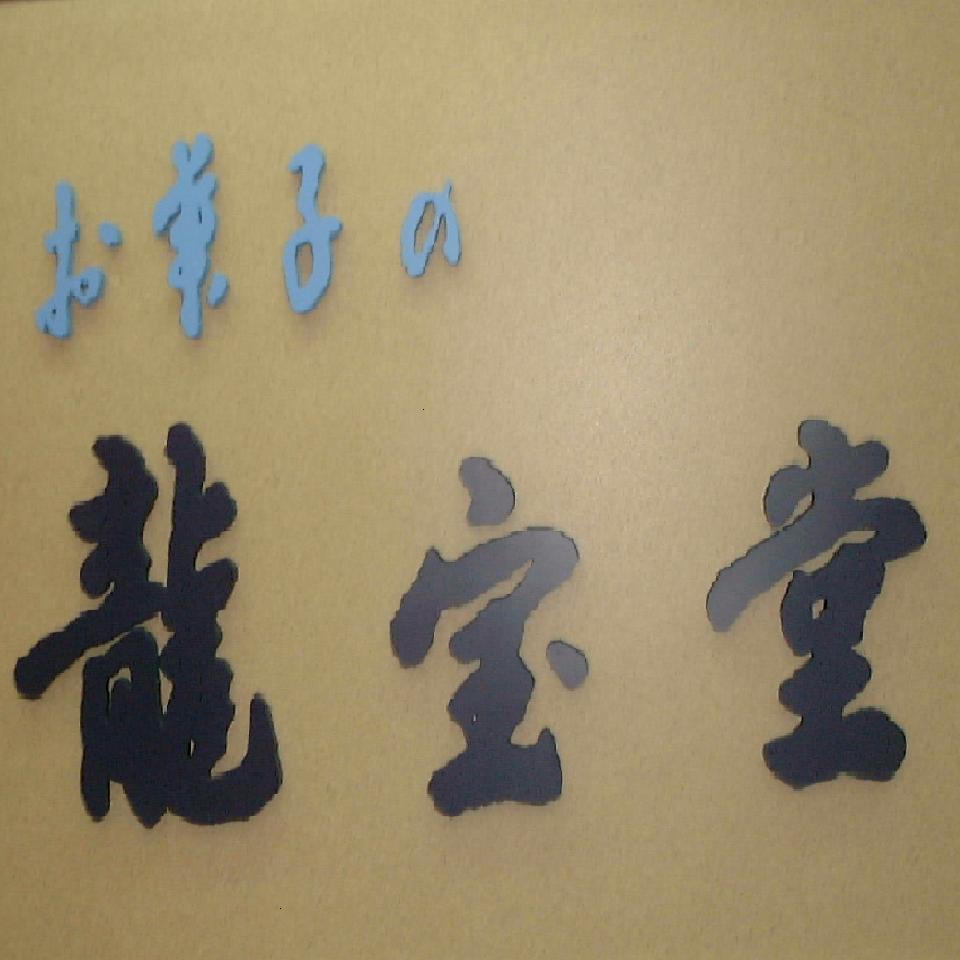 お菓子の
龍宝堂